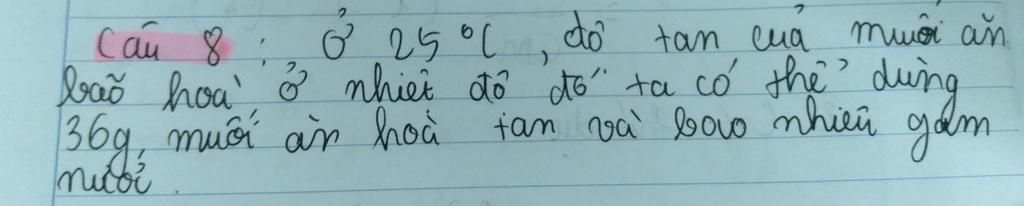 Câu 8 : Ở 25°C, độ tan của muối ăn
bão hoà ở nhiệt độ đó ta có thể dùng
36g, muối ăn hoà tan vài bao nhiêu gam
nước.